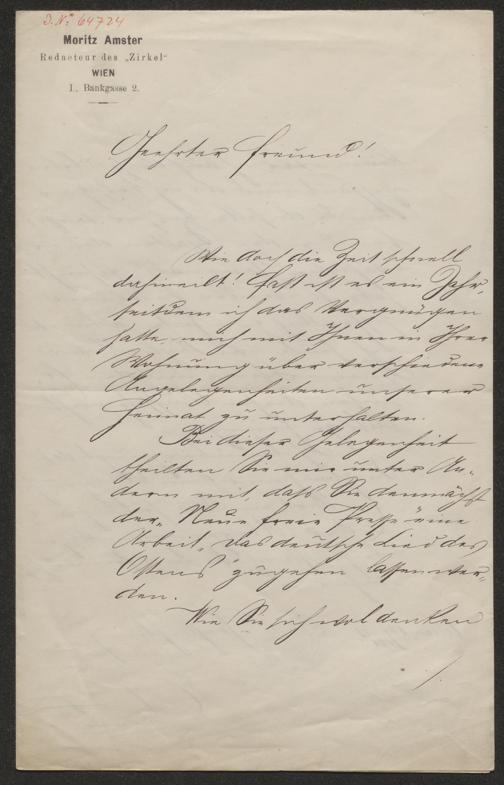 J. N: 64724
Moritz Amster
Redacteur des „Zirkel“
WIEN
I., Bankgasse 2.
Geehrter Freund!
Wie doch die Zeit schnell
dahineilt! Fast ist es ein Jahr,
seitdem ich das Vergnügen
hatte, mich mit Ihnen in Ihrer
Wohnung über verschiedene
Angelegenheiten unserer
Heimat zu unterhalten.
Bei dieser Gelegenheit
theilten Sie mir unter An-
dern mit, daß Sie demnächst
der „Neue freie Presse“ eine
Arbeit, „Das deutsche Lied des
Ostens“ zugehen lassen wer-
den.
Wie Sie sich wol denken
/.